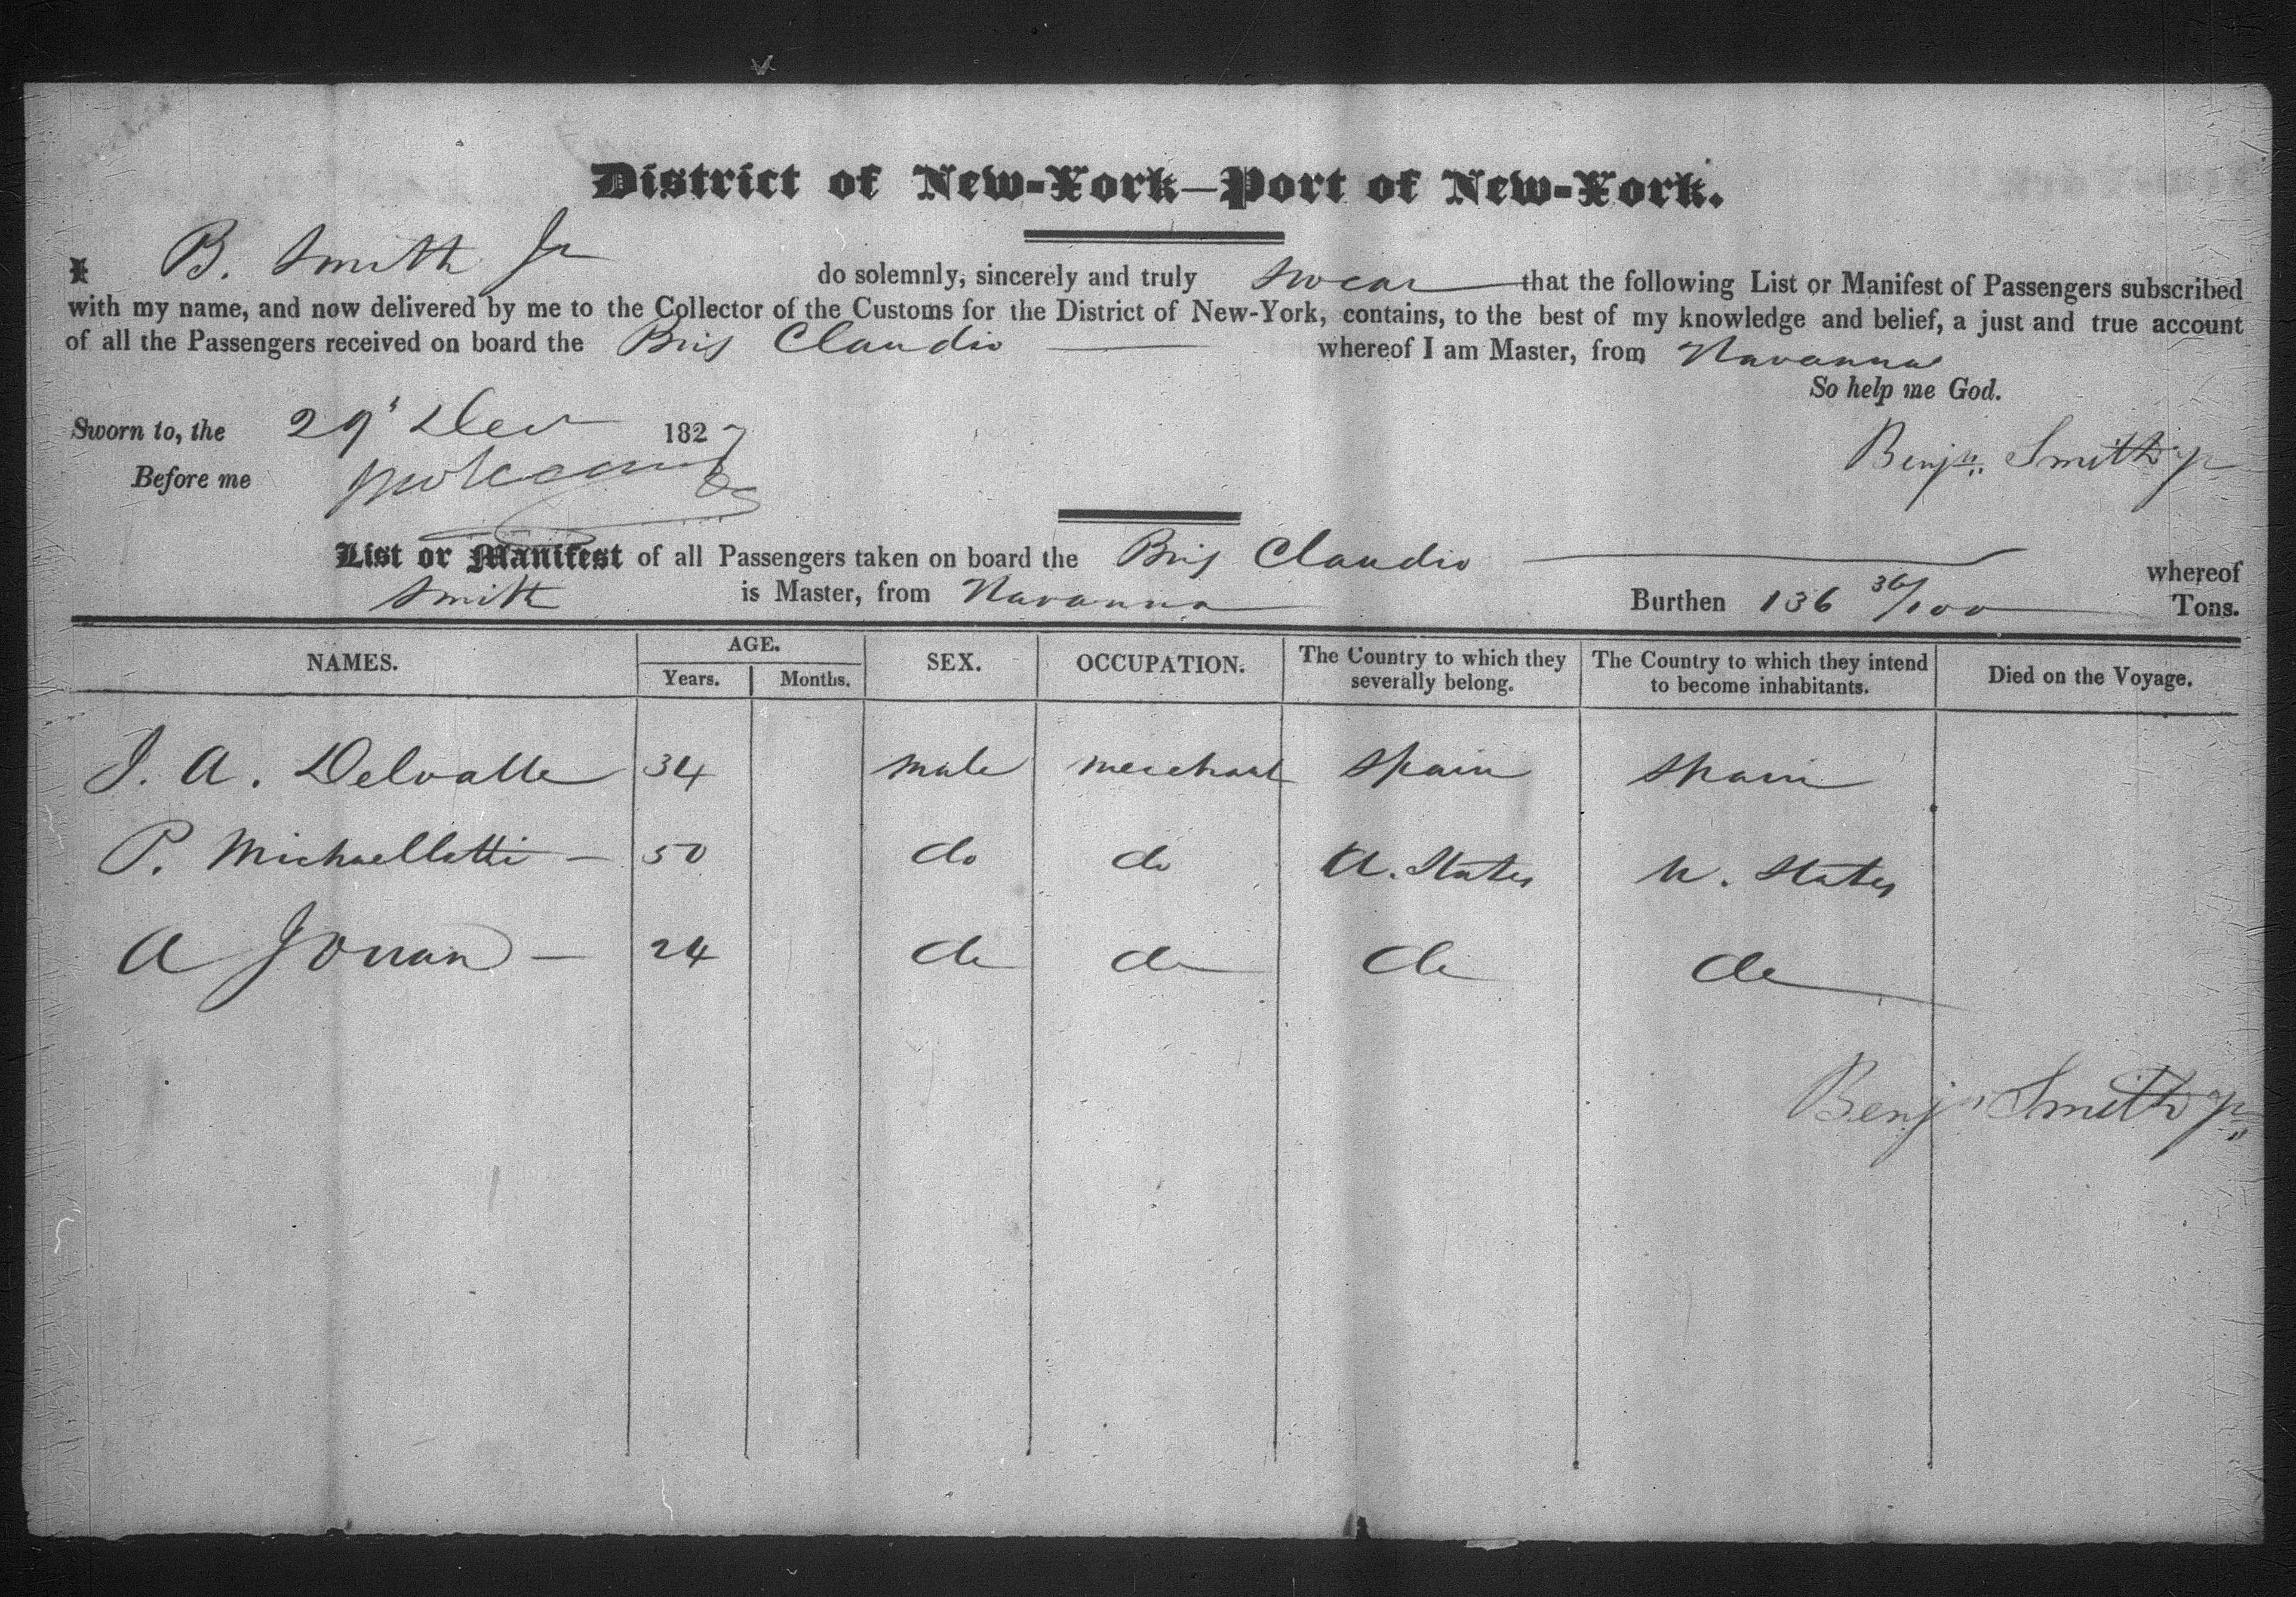 District of New-York—Port of New-York.
I B. Smith Jr do solemnly, sincerely and truly swear that the following List or Manifest of Passengers subscribed
with my name, and now delivered by me to the Collector of the Customs for the District of New-York, contains, to the best of my knowledge and belief, a just and true account
of all the Passengers received on board the Brig Claudio whereof I am Master, from Havanna
So help me God.
Sworn to, the 29 Dec 1827
Before me
Benjn. Smith Jr
List or Manifest of all Passengers taken on board the Brig Claudio whereof
Smith is Master, from Havanna Burthen 136 36/100 Tons.
NAMES. AGE. SEX. OCCUPATION. The Country to which they severally belong. The Country to which they intend to become inhabitants. Died on the Voyage.
Years. Months.
J. A. Delvalle 34 male merchant Spain Spain
P. Michaelletti — 50 do do U. States U. States
A Jouan — 24 do do do do
Benjn Smith Jr